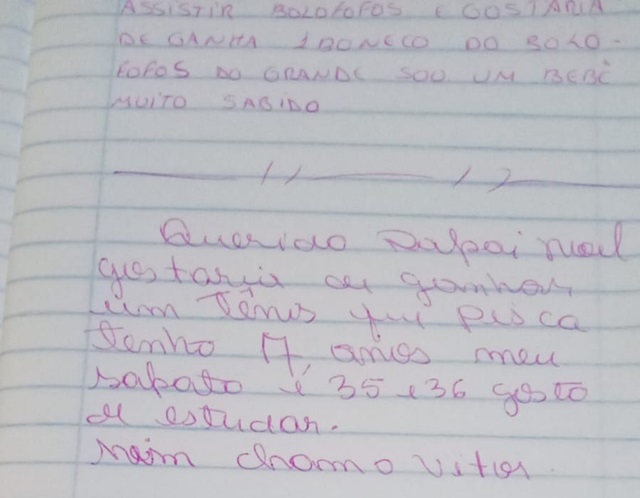 ASSISTIR BOLOFOFOS E GOSTARIA
DE GANHA 1 BONECO DO BOLO-
FOFOS DO GRANDE SOU UM BEBÊ
MUITO SABIDO
Querido Papai Noel
gostaria de ganhar
um Tênis que pisca
Tenho 7 anos meu
sapato é 35 e 36 gosto
de estudar.
mim chamo vitor